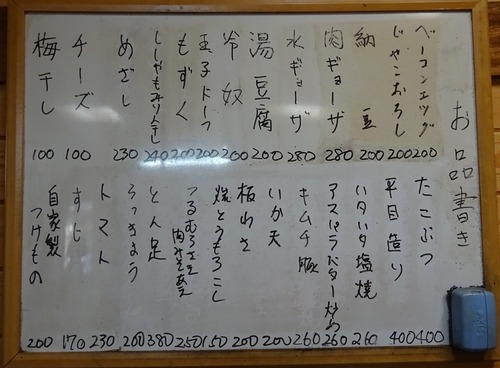 お品書き
ベーコンエッグ 200
じゃこおろし 200
納豆 200
肉ギョーザ 280
水ギョーザ 280
湯豆腐 200
冷奴 200
玉子ドーフ 200
もずく 200
ししゃもみりん干し 240
めざし 230
チーズ 100
梅干し 100
たこぶつ 400
平目造り 400
塩焼 260
アスパラバター炒め 260
キムチ豚 260
いか天 200
板わさ 200
焼とうもろこし 150
つるむらさき
肉みそあえ 250
とん足 380
らっきょう 200
トマト 230
すじ 170
自家製
つけもの 200